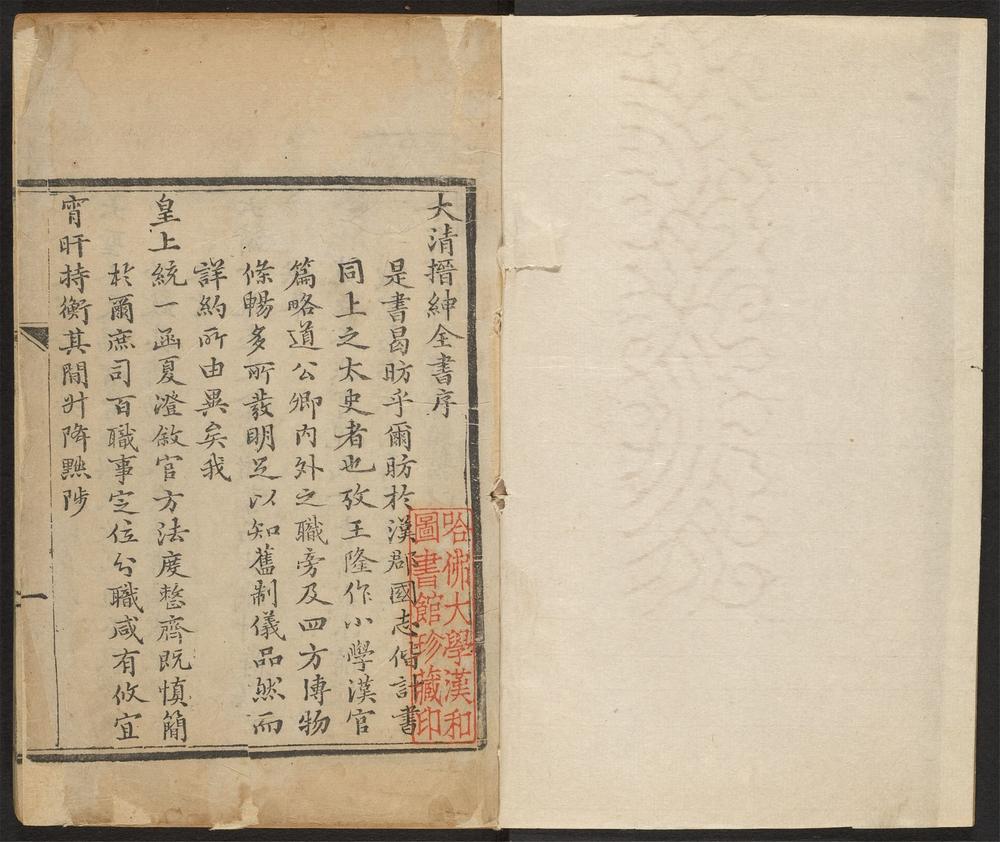 大清搢紳全書序
是書曷昉乎爾昉於漢郡國志偕計書
同上之太史者也攷王隆作小學漢官
篇略道公卿內外之職旁及四方博物
條暢多所發明足以知舊制儀品然而
詳約所由異矣我
皇上統一函夏澄敘官方法度整齊既慎簡
於爾庶司百職事定位分職咸有攸宜
宵旰持衡其間升降黜陟
一
哈佛大學漢和
圖書館珍藏印